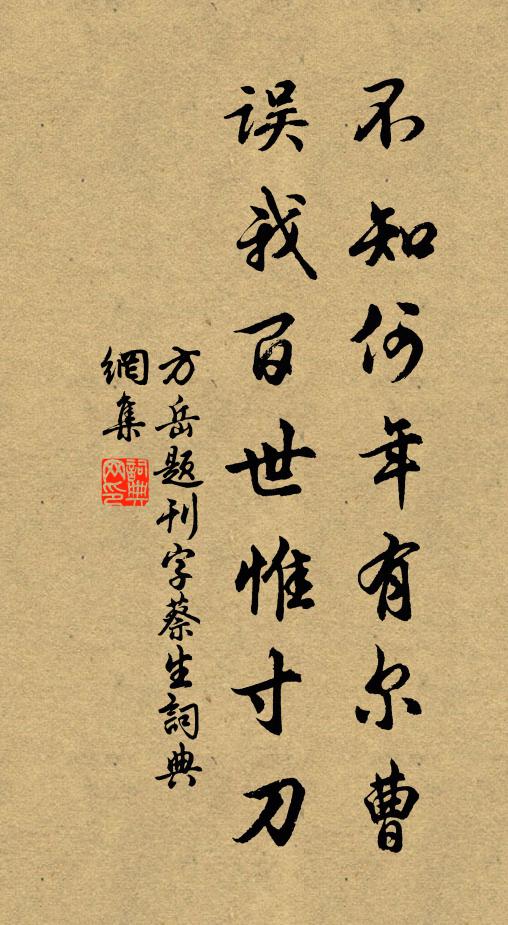 不知何年有尔曹
误我百世惟寸刀
方岳题刊字蔡生詞典
網集
詞典
网印